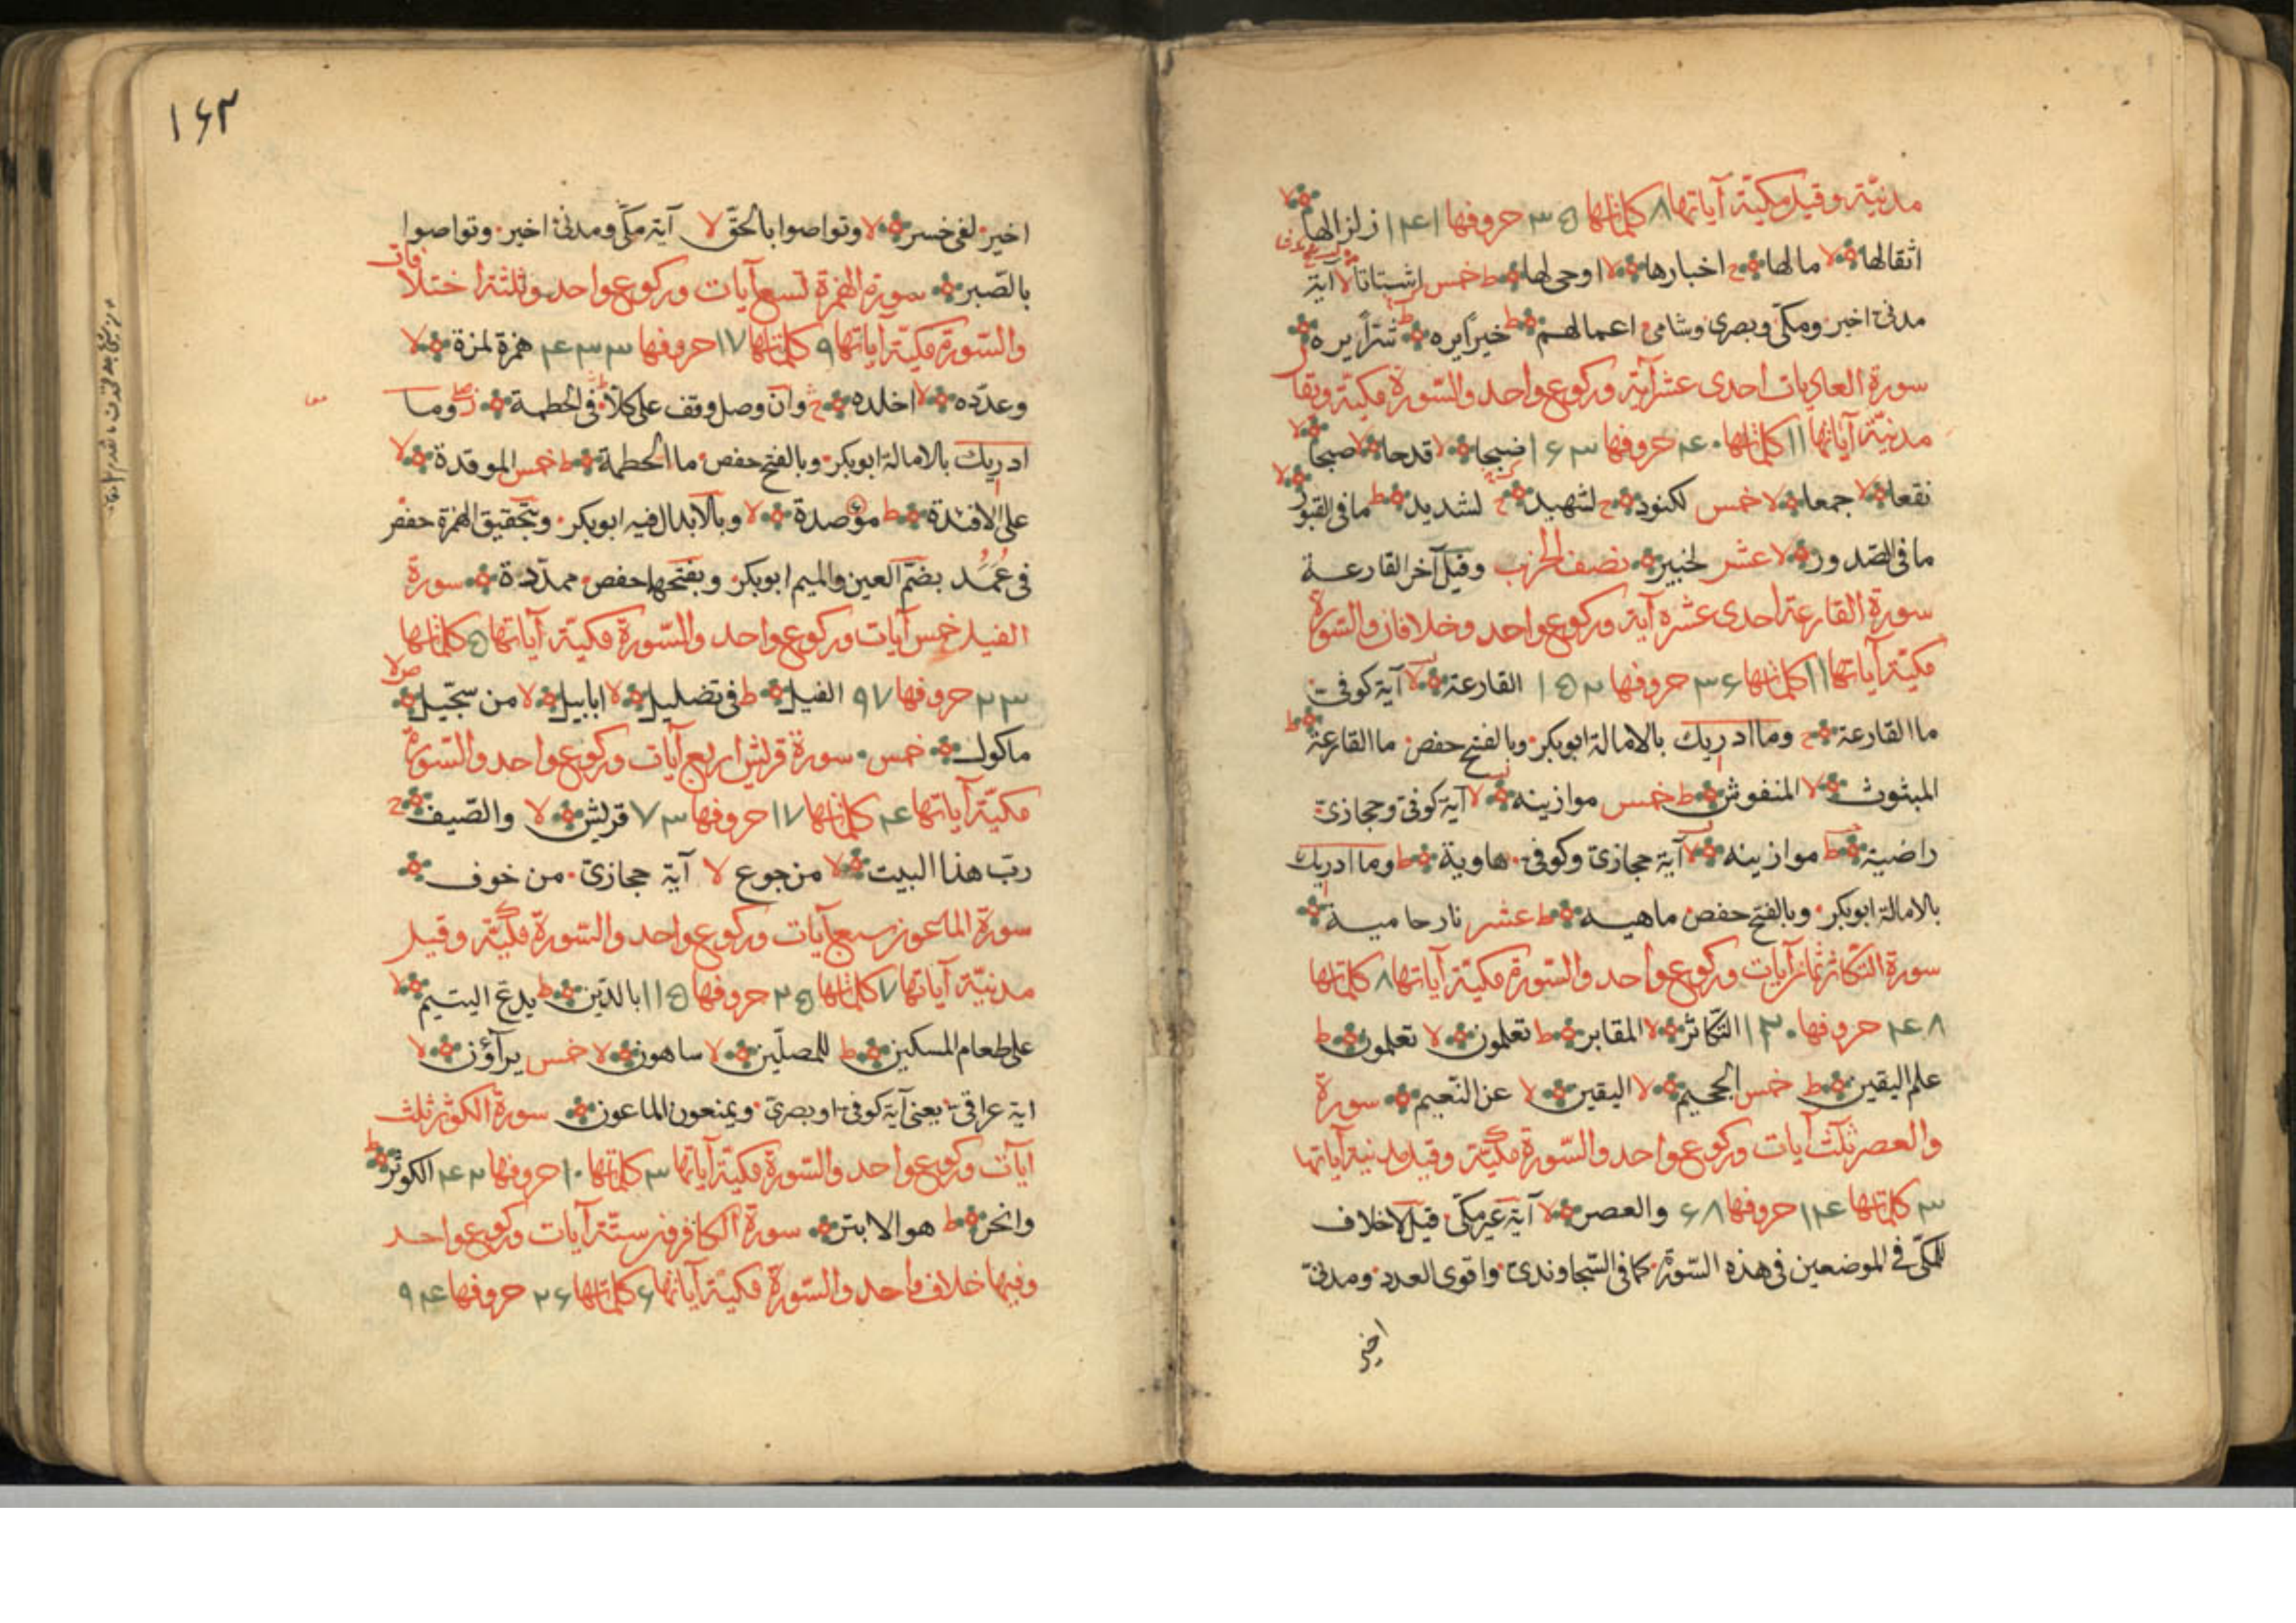 مدنيّة وقيل مكيّة آياتها ٨ كلماتها ٣٥ حروفها ١٤١ زلزالها لا
اثقالها لا مالها ج اخبارها لا اوحى لها ط خمس اشتاتا لا آية
مدنى اخير ومكّى وبصرى وشامى اعمالهم ط خيرا يره ط شرّا يره
سورة العاديات احدى عشر آية وركوع واحد والسّورة مكيّة ويقال
مدنيّة آياتها ١١ كلماتها ٤٠ حروفها ١٦٣ ضبحا لا قدحا لا صبحا لا
نقعا لا جمعا لا خمس لكنود ج لشهيد ج لشديد ط ما فى القبور لا
ما فى الصّدور لا عشر لخبير نصف الحزب وقيل آخر القارعة
سورة القارعة احدى عشره آية وركوع واحد وخلافان والسّورة
مكيّة آياتها ١١ كلماتها ٣٦ حروفها ١٥٢ القارعة لا آية كوفى
ما القارعة ج وما ادريك بالامالة ابوبكر وبالفتح حفص ما القارعة ط
المبثوث لا المنفوش ط خمس موازينه لا آية كوفى وحجازى
راضية ط موازينه لا آية حجازى وكوفى هاوية ط وما ادريك
بالامالة ابوبكر وبالفتح حفص ماهيه ط عشر نار حامية
سورة التكاثر ثمان آيات وركوع واحد والسّورة مكيّة آياتها ٨ كلماتها
٤٨ حروفها ١٢٠ التّكاثر لا المقابر ط تعلمون لا تعلمون ط
علم اليقين ط خمس الجحيم لا اليقين لا عن النّعيم سورة
والعصر ثلث آيات وركوع واحد والسّورة مكيّة وقيل مدنية آياتها
٣ كلماتها ١٤ حروفها ٦٨ والعصر لا آية غير مكّى قيل لا خلاف
للمكّى فى الموضعين فى هذه السّورة كما فى السّجاوندى واقوى العدد ومدنى
اخير
١٦٣
اخير لفى خسر لا وتواصوا بالحقّ لا آية مكّى ومدنى اخير وتواصوا
بالصّبر سورة الهمزة تسع آيات وركوع واحد وثلثة اختلافات
والسّورة مكيّة آياتها ٩ كلماتها ١٧ حروفها ٣٣ ٤ همزة لمزة لا
وعدّده لا اخلده ج وان وصل وقف على كلّا فى الحطمة وما
ادريك بالامالة ابوبكر وبالفتح حفص ما الحطمة ط خمس الموقدة لا
على الافئدة ط مؤصدة لا وبالابدال فيه ابوبكر وبتحقيق الهمزة حفص
فى عُمُد بضمّ العين والميم ابوبكر وبفتحها حفص ممدّدة سورة
الفيل خمس آيات وركوع واحد والسّورة مكيّة آياتها ٥ كلماتها
٢٣ حروفها ٩٧ الفيل ط فى تضليل لا ابابيل لا من سجّيل ص لا
ماكول خمس سورة قريش اربع آيات وركوع واحد والسّورة
مكيّة آياتها ٤ كلماتها ١٧ حروفها ٧٣ قريش لا والصّيف ج
ربّ هذا البيت لا من جوع لا آية حجازى من خوف
سورة الماعون سبع آيات وركوع واحد والسّورة مكيّة وقيل
مدنيّة آياتها ٧ كلماتها ٢٥ حروفها ١١٥ بالدّين ط يدعّ اليتيم لا
على طعام المسكين ط للمصلّين لا ساهون لا خمس يرآؤن لا
اية عراقى يعنى آية كوفى وبصرى ويمنعون الماعون سورة الكوثر ثلث
ايآت وركوع واحد والسّورة مكيّة آياتها ٣ كلماتها ١٠ حروفها ٤٢ الكوثر ط
وانحر ط هو الابتر سورة الكافرون ستّة آيات وركوع واحد
وفيها خلاف واحد والسّورة مكيّة آياتها ٦ كلماتها ٢٦ حروفها ٩٤